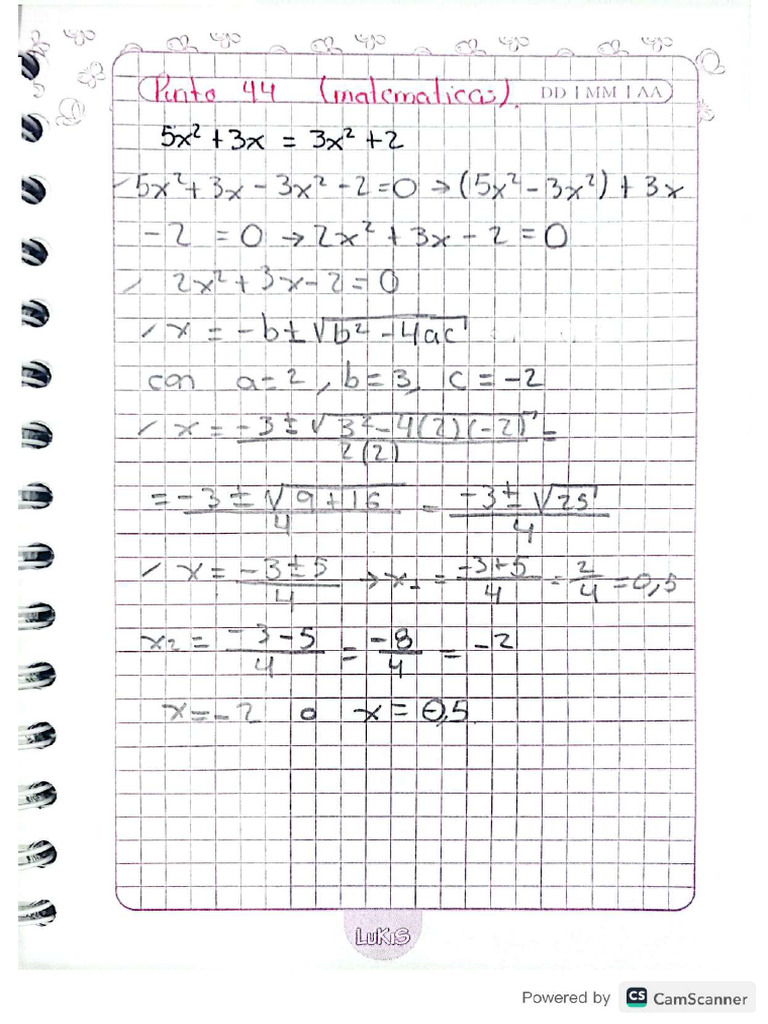 Punto 44 (matematicas).
DD | MM | AA
5x² + 3x = 3x² + 2
5x² + 3x - 3x² - 2 = 0 → (5x² - 3x²) + 3x
- 2 = 0 → 2x² + 3x - 2 = 0
2x² + 3x - 2 = 0
x = -b ± √b² - 4ac
con a = 2, b = 3, c = -2
x = -3 ± √3² - 4(2)(-2) =
2(2)
= -3 ± √9 + 16 = -3 ± √25
4 4
x = -3 ± 5 → x₁ = -3 + 5 = 2 = 0,5
4 4 4
x₂ = -3 - 5 = -8 = -2
4 4
x = -2 o x = 0,5
LUKIS
Powered by CS CamScanner